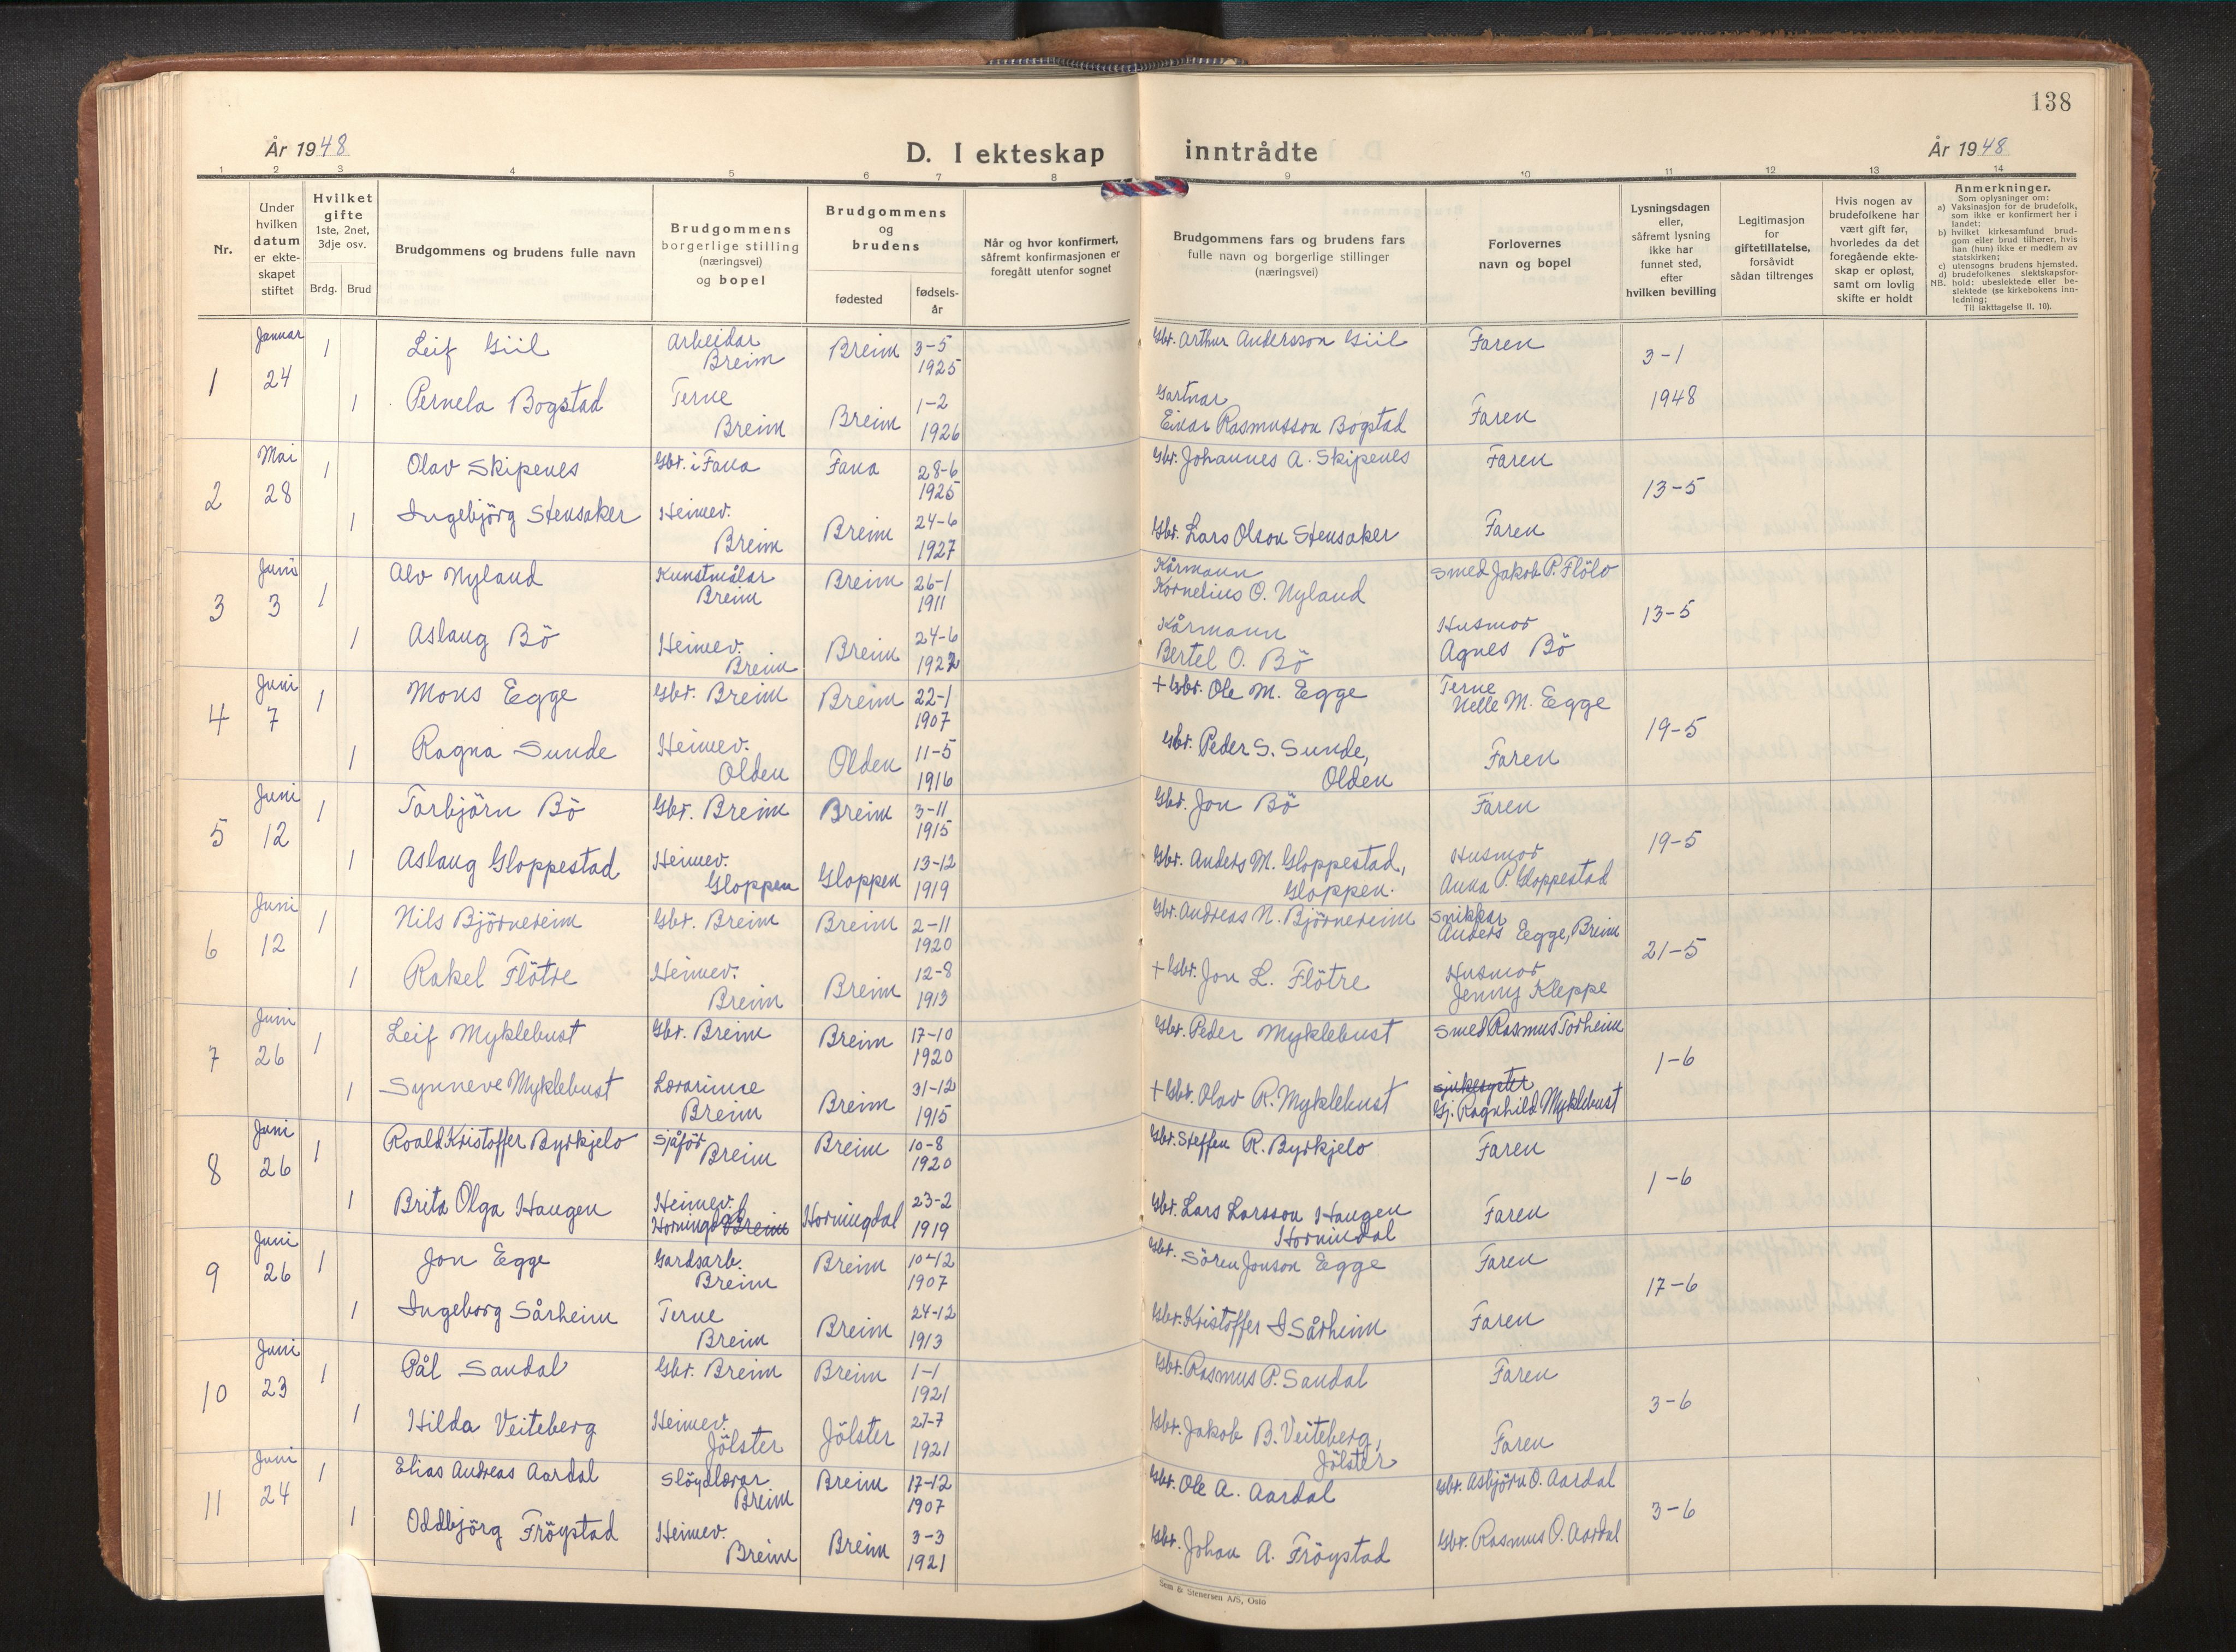 138
År 1948
D. I ekteskap inntrådte
År 1948
1 2 3 4 5 6 7 8 9 10 11 12 13 14
Nr.
Under
hvilken
datum
er ekte-
skapet
stiftet
Hvilket
gifte
1ste, 2net,
3dje osv.
Brdg. Brud
Brudgommens og brudens fulle navn
Brudgommens
borgerlige stilling
(næringsvei)
og bopel
Brudgommens
og
brudens
fødested
fødsels-
år
Når og hvor konfirmert,
såfremt konfirmasjonen er
foregått utenfor sognet
Brudgommens fars og brudens fars
fulle navn og borgerlige stillinger
(næringsvei)
Forlovernes
navn og bopel
Lysningsdagen
eller,
såfremt lysning
ikke har
funnet sted,
efter
hvilken bevilling
Legitimasjon
for
giftetillatelse,
forsåvidt
sådan tiltrenges
Hvis nogen av
brudefolkene har
vært gift før,
hvorledes da det
foregående ekte-
skap er opløst,
samt om lovlig
skifte er holdt
Anmerkninger.
Som oplysninger om:
a) Vaksinasjon for de brudefolk,
som ikke er konfirmert her i
landet;
b) hvilket kirkesamfund brud-
gom eller brud tilhører, hvis
han (hun) ikke er medlem av
statskirken;
c) utensogns brudens hjemsted,
d) brudefolkenes slektskapsfor-
NB. hold: ubeslektede eller be-
slektede (se kirkebokens inn-
ledning;
Til iakttagelse II. 10).
1 Januar 24 1 Leif Giil Arbeidar Breim Breim 3-5 1925 Gbr. Arthur Andersson Giil Faren 3-1 1948
1 Pernela Bogstad Terne Breim Breim 1-2 1926 Gartnar Einar Rasmusson Bogstad Faren
2 Mai 28 1 Olav Skipenes Gbr. i Fana Fana 28-6 1925 Gbr. Johannes A. Skipenes Faren 13-5
1 Ingebjörg Stensaker Heimev. Breim Breim 24-6 1927 Gbr. Lars Olson Stensaker Faren
3 Juni 3 1 Alv Nyland Kunstmålar Breim Breim 26-1 1911 Kårmann Kornelius O. Nyland Smed Jakob P. Flölo 13-5
1 Aslaug Bö Heimev. Breim Breim 24-6 1922 Kårmann Bertel O. Bö Husmor Agnes Bö
4 Juni 7 1 Mons Egge Gbr. Breim Breim 22-1 1907 + Gbr. Ole M. Egge Terne Nelle M. Egge 19-5
1 Ragna Sunde Heimev. Olden Olden 11-5 1916 Gbr. Peder S. Sunde, Olden Faren
5 Juni 12 1 Torbjörn Bö Gbr. Breim Breim 3-11 1915 Gbr. Jon Bö Faren 19-5
1 Aslaug Gloppestad Heimev. Gloppen Gloppen 13-12 1919 Gbr. Anders M. Gloppestad, Gloppen. Husmor Anna P. Gloppestad
6 Juni 12 1 Nils Björnereim Gbr. Breim Breim 2-11 1920 Gbr. Andreas N. Björnereim Snikkar Anders Egge, Breim 21-5
1 Rakel Flötre Heimev. Breim Breim 12-8 1913 + Gbr. Jon L. Flötre Husmor Jenny Kleppe
7 Juni 26 1 Leif Myklebust Gbr. Breim Breim 17-10 1920 Gbr. Peder Myklebust Smed Rasmus Torheim 1-6
1 Synneve Myklebust Lærarinne Breim Breim 31-12 1915 + Gbr. Olav R. Myklebust sjukesyster Gj. Ragnhild Myklebust
8 Juni 26 1 Roald Kristoffer Byrkjelo Sjåför Breim Breim 10-8 1920 Gbr. Steffen R. Byrkjelo Faren 1-6
1 Brita Olga Haugen Heimev. Horningd. Breim Horningdal 23-2 1919 Gbr. Lars Larsson Haugen Hornindal Faren
9 Juni 26 1 Jon Egge Gardsarb. Breim Breim 10-12 1907 Gbr. Sören Jonson Egge Faren 17-6
1 Ingeborg Sårheim Terne Breim Breim 24-12 1913 Gbr. Kristoffer I Sårheim Faren
10 Juni 23 1 Pål Sandal Gbr. Breim Breim 1-1 1921 Gbr. Rasmus P. Sandal Faren 3-6
1 Hilda Veiteberg Heimev. Jölster Jölster 27-7 1921 Gbr. Jakob B. Veiteberg, Jölster Faren
11 Juni 24 1 Elias Andreas Aardal Slöydlærar Breim Breim 17-12 1907 Gbr. Ole A. Aardal Gbr. Asbjörn O. Aardal 3-6
1 Oddbjörg Fröystad Heimev. Breim Breim 3-3 1921 Gbr. Johan A. Fröystad Gbr. Rasmus O. Aardal
Sem & Stenersen A/S, Oslo